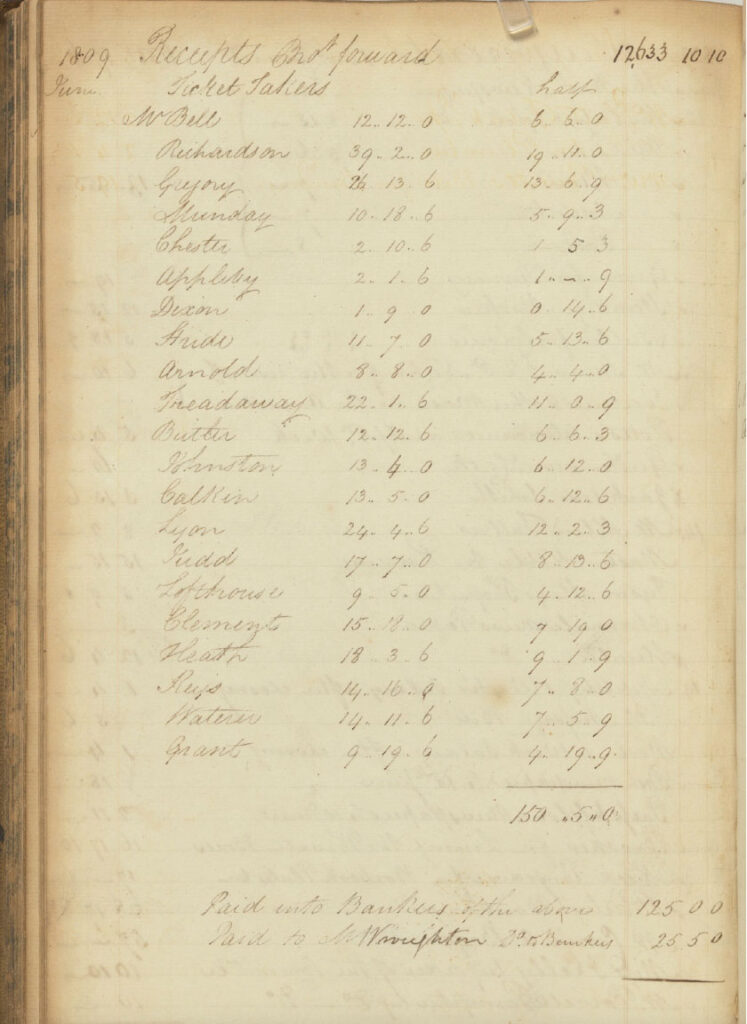 1809 Receipts Brot forward 12633 10 10
June Ticket Takers half
Mr Bell 12..12..0 6..6..0
Richardson 39..2..0 19..11..0
Gregory 26..13..6 13..6..9
Munday 10..18..6 5..9..3
Chester 2..10..6 1 5 3
Appleby 2..1..6 1..-..9
Dixon 1..9..0 0..14..6
Stride 11..7..0 5..13..6
Arnold 8..8..0 4..4..0
Treadaway 22..1..6 11..0..9
Butler 12..12..6 6..6..3
Johnston 13..4..0 6..12..0
Calkin 13..5..0 6..12..6
Lyon 24..4..6 12..2..3
Judd 17..7..0 8..13..6
Lofthouse 9..5..0 4..12..6
Clements 15..18..0 7 19 0
Heath 18..3..6 9..1..9
14..16..0 7..8..0
Waterer 14..11..6 7..5..9
Grant 9..19..6 4..19..9
150..5..0
Paid into Bankers of the above 125 0 0
Paid to Mr Wroughton Do to Bankers 25 5 0